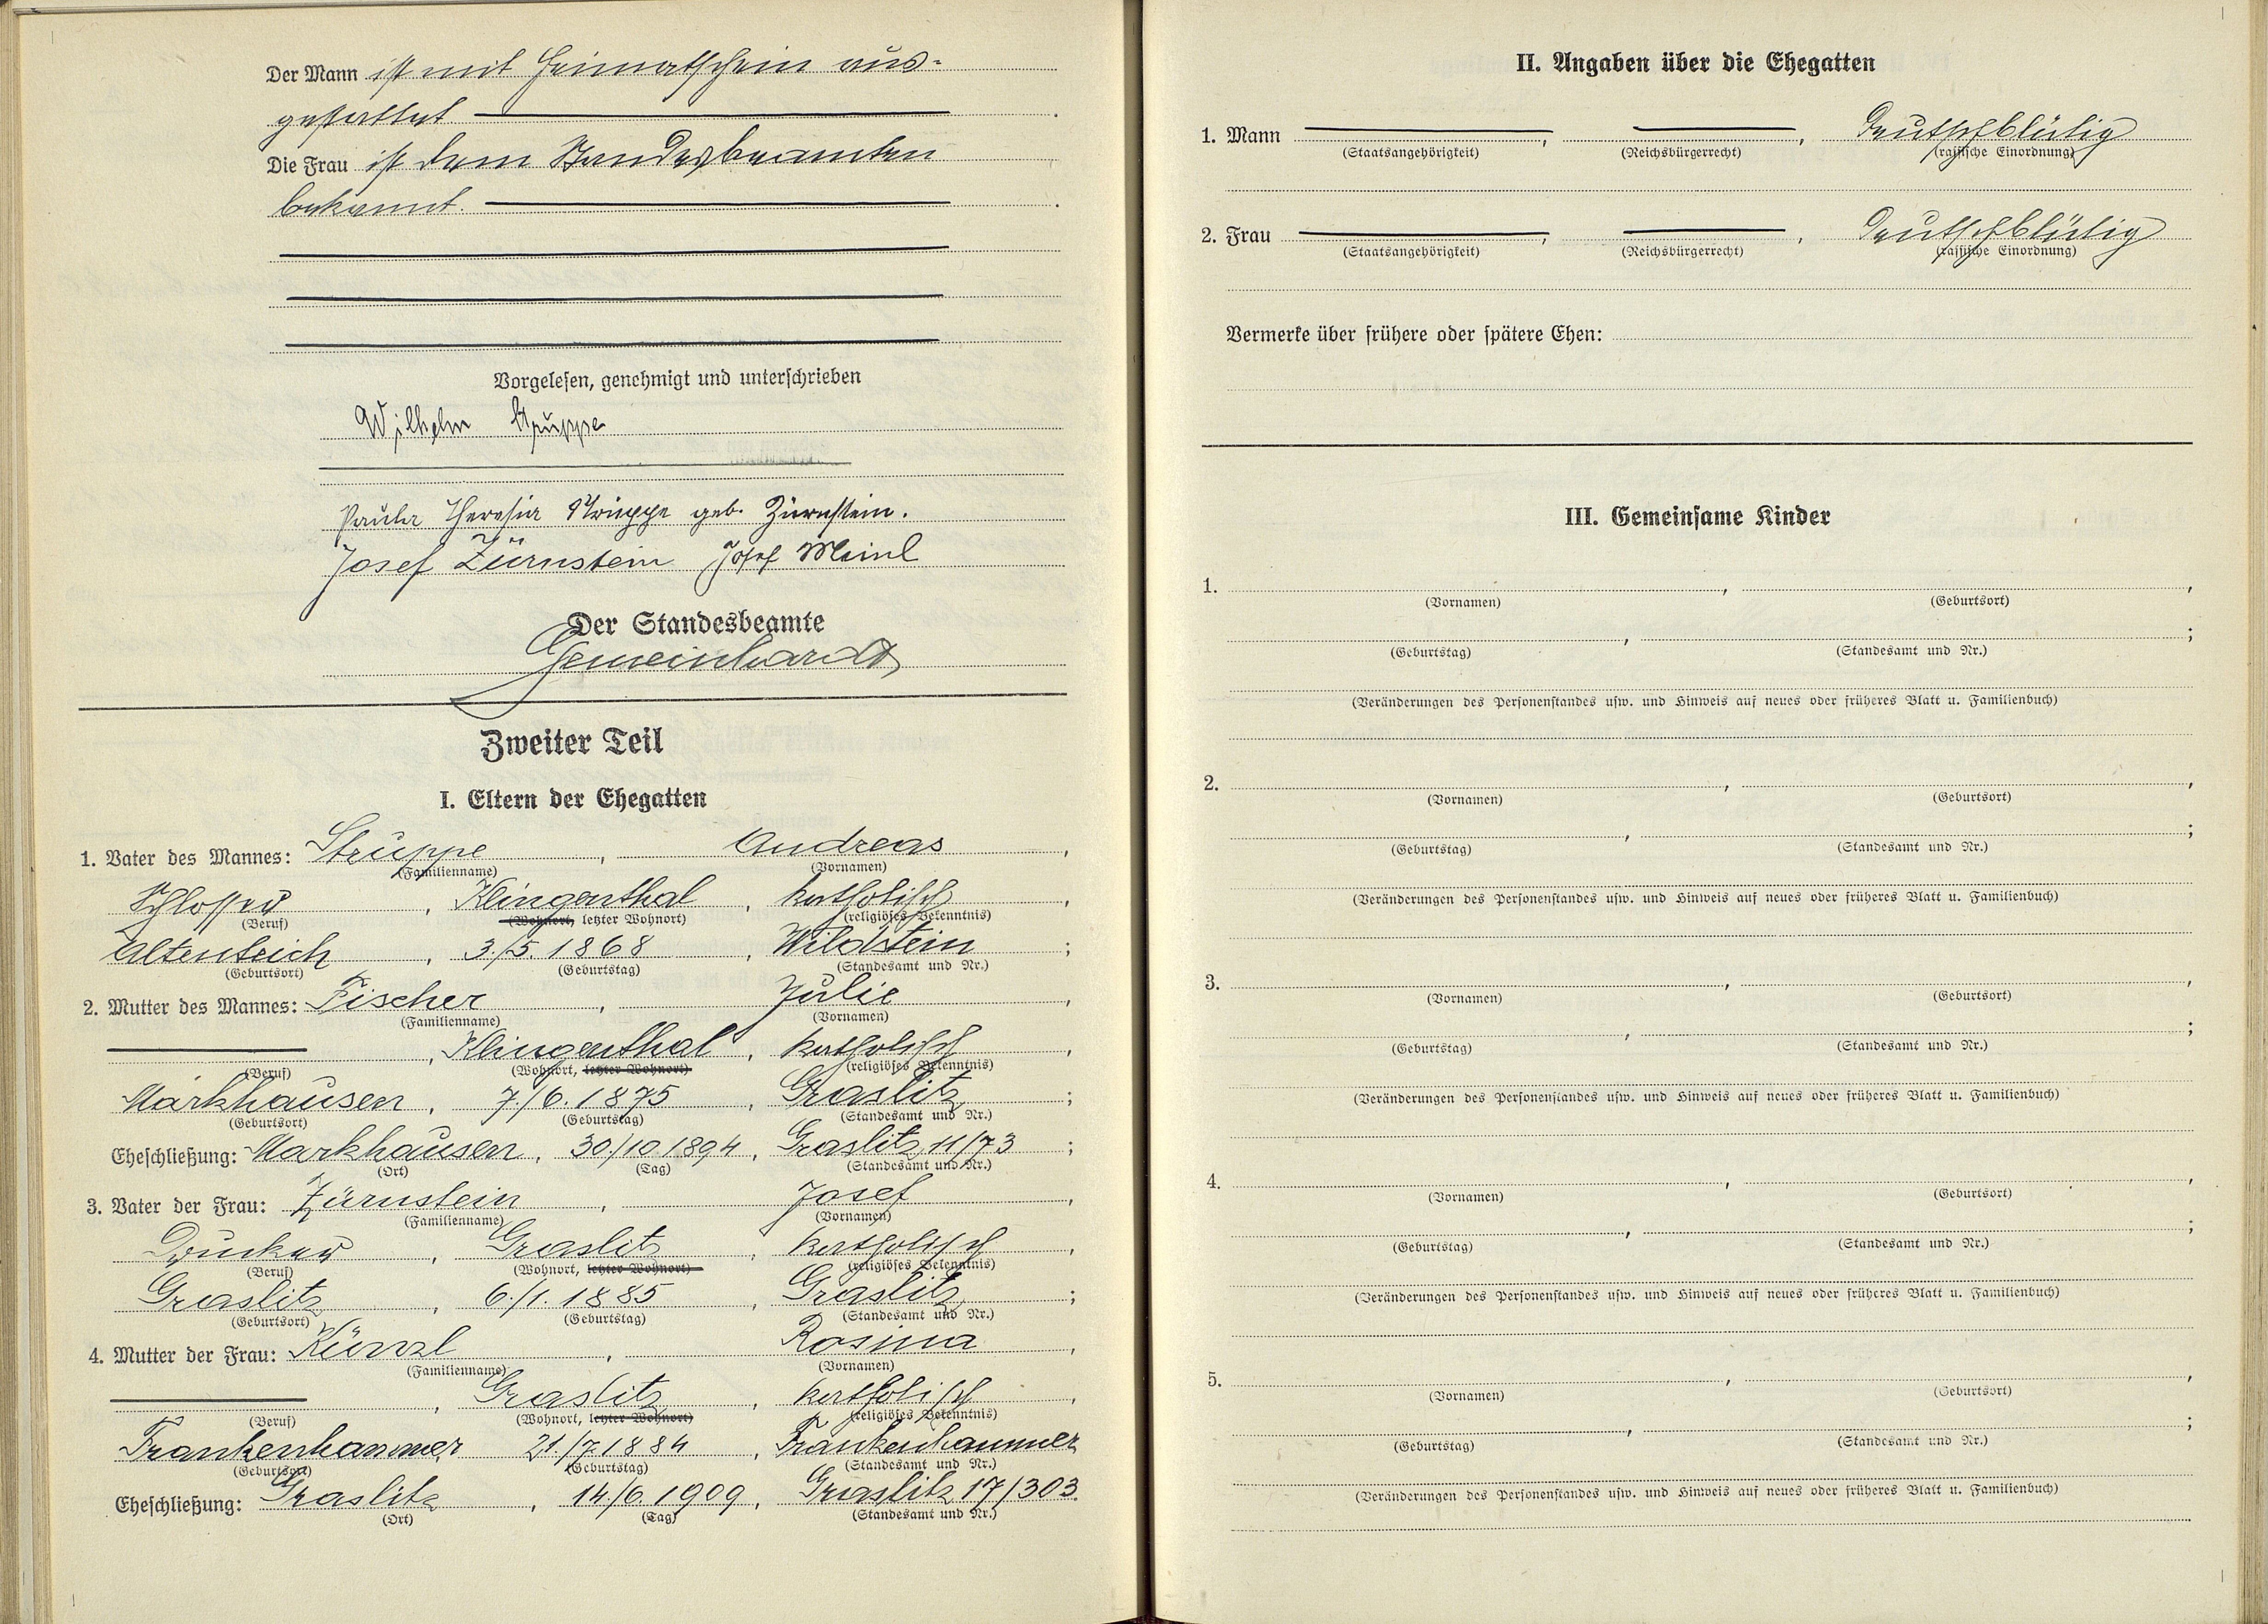 Der Mann ist mit Heimatschein aus-
gestattet.
Die Frau ist dem Standesbeamten
bekannt.
Vorgelesen, genehmigt und unterschrieben
Wilhelm Struppe
Paula Theresia Struppe geb. Zürnstein.
Josef Zürnstein Josef Meinl
Der Standesbeamte
Gemeinhardt
Zweiter Teil
I. Eltern der Ehegatten
1. Vater des Mannes: Struppe, Andreas,
(Familienname) (Vornamen)
Schlosser, Klingenthal, katholisch,
(Beruf) (Wohnort, letzter Wohnort) (religiöses Bekenntnis)
Altenteich, 3./5. 1868, Wildstein;
(Geburtsort) (Geburtstag) (Standesamt und Nr.)
2. Mutter des Mannes: Fischer, Julie,
(Familienname) (Vornamen)
, Klingenthal, katholisch,
(Beruf) (Wohnort, letzter Wohnort) (religiöses Bekenntnis)
Markhausen, 7./6. 1875, Graslitz;
(Geburtsort) (Geburtstag) (Standesamt und Nr.)
Eheschließung: Markhausen, 30./10. 1894, Graslitz, 11/73;
(Ort) (Tag) (Standesamt und Nr.)
3. Vater der Frau: Zürnstein, Josef,
(Familienname) (Vornamen)
Drucker, Graslitz, katholisch,
(Beruf) (Wohnort, letzter Wohnort) (religiöses Bekenntnis)
Graslitz, 6./1. 1885, Graslitz;
(Geburtsort) (Geburtstag) (Standesamt und Nr.)
4. Mutter der Frau: Künzl, Rosina,
(Familienname) (Vornamen)
, Graslitz, katholisch,
(Beruf) (Wohnort, letzter Wohnort) (religiöses Bekenntnis)
Frankenhammer, 21./7. 1884, Frankenhammer
(Geburtsort) (Geburtstag) (Standesamt und Nr.)
Eheschließung: Graslitz, 14./6. 1909, Graslitz 17/303.
(Ort) (Tag) (Standesamt und Nr.)
II. Angaben über die Ehegatten
1. Mann , , deutschblütig
(Staatsangehörigkeit) (Reichsbürgerrecht) (rassische Einordnung)
2. Frau , , deutschblütig
(Staatsangehörigkeit) (Reichsbürgerrecht) (rassische Einordnung)
Vermerke über frühere oder spätere Ehen:
III. Gemeinsame Kinder
1. , ,
(Vornamen) (Geburtsort)
, ;
(Geburtstag) (Standesamt und Nr.)
(Veränderungen des Personenstandes usw. und Hinweis auf neues oder früheres Blatt u. Familienbuch)
2. , ,
(Vornamen) (Geburtsort)
, ;
(Geburtstag) (Standesamt und Nr.)
(Veränderungen des Personenstandes usw. und Hinweis auf neues oder früheres Blatt u. Familienbuch)
3. , ,
(Vornamen) (Geburtsort)
, ;
(Geburtstag) (Standesamt und Nr.)
(Veränderungen des Personenstandes usw. und Hinweis auf neues oder früheres Blatt u. Familienbuch)
4. , ,
(Vornamen) (Geburtsort)
, ;
(Geburtstag) (Standesamt und Nr.)
(Veränderungen des Personenstandes usw. und Hinweis auf neues oder früheres Blatt u. Familienbuch)
5. , ,
(Vornamen) (Geburtsort)
, ;
(Geburtstag) (Standesamt und Nr.)
(Veränderungen des Personenstandes usw. und Hinweis auf neues oder früheres Blatt u. Familienbuch)